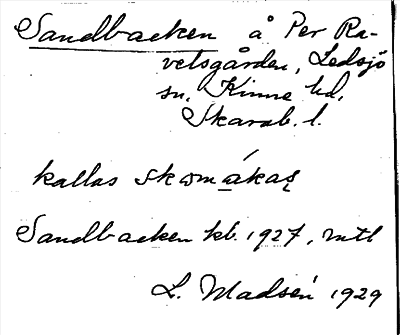 Sandbacken å Per Ra-
velsgården, Ledsjö
sn. Kinne hd,
Skarab. l.
kallas skomákaṣ
Sandbacken kb. 1927, mtl
L. Madsén 1929